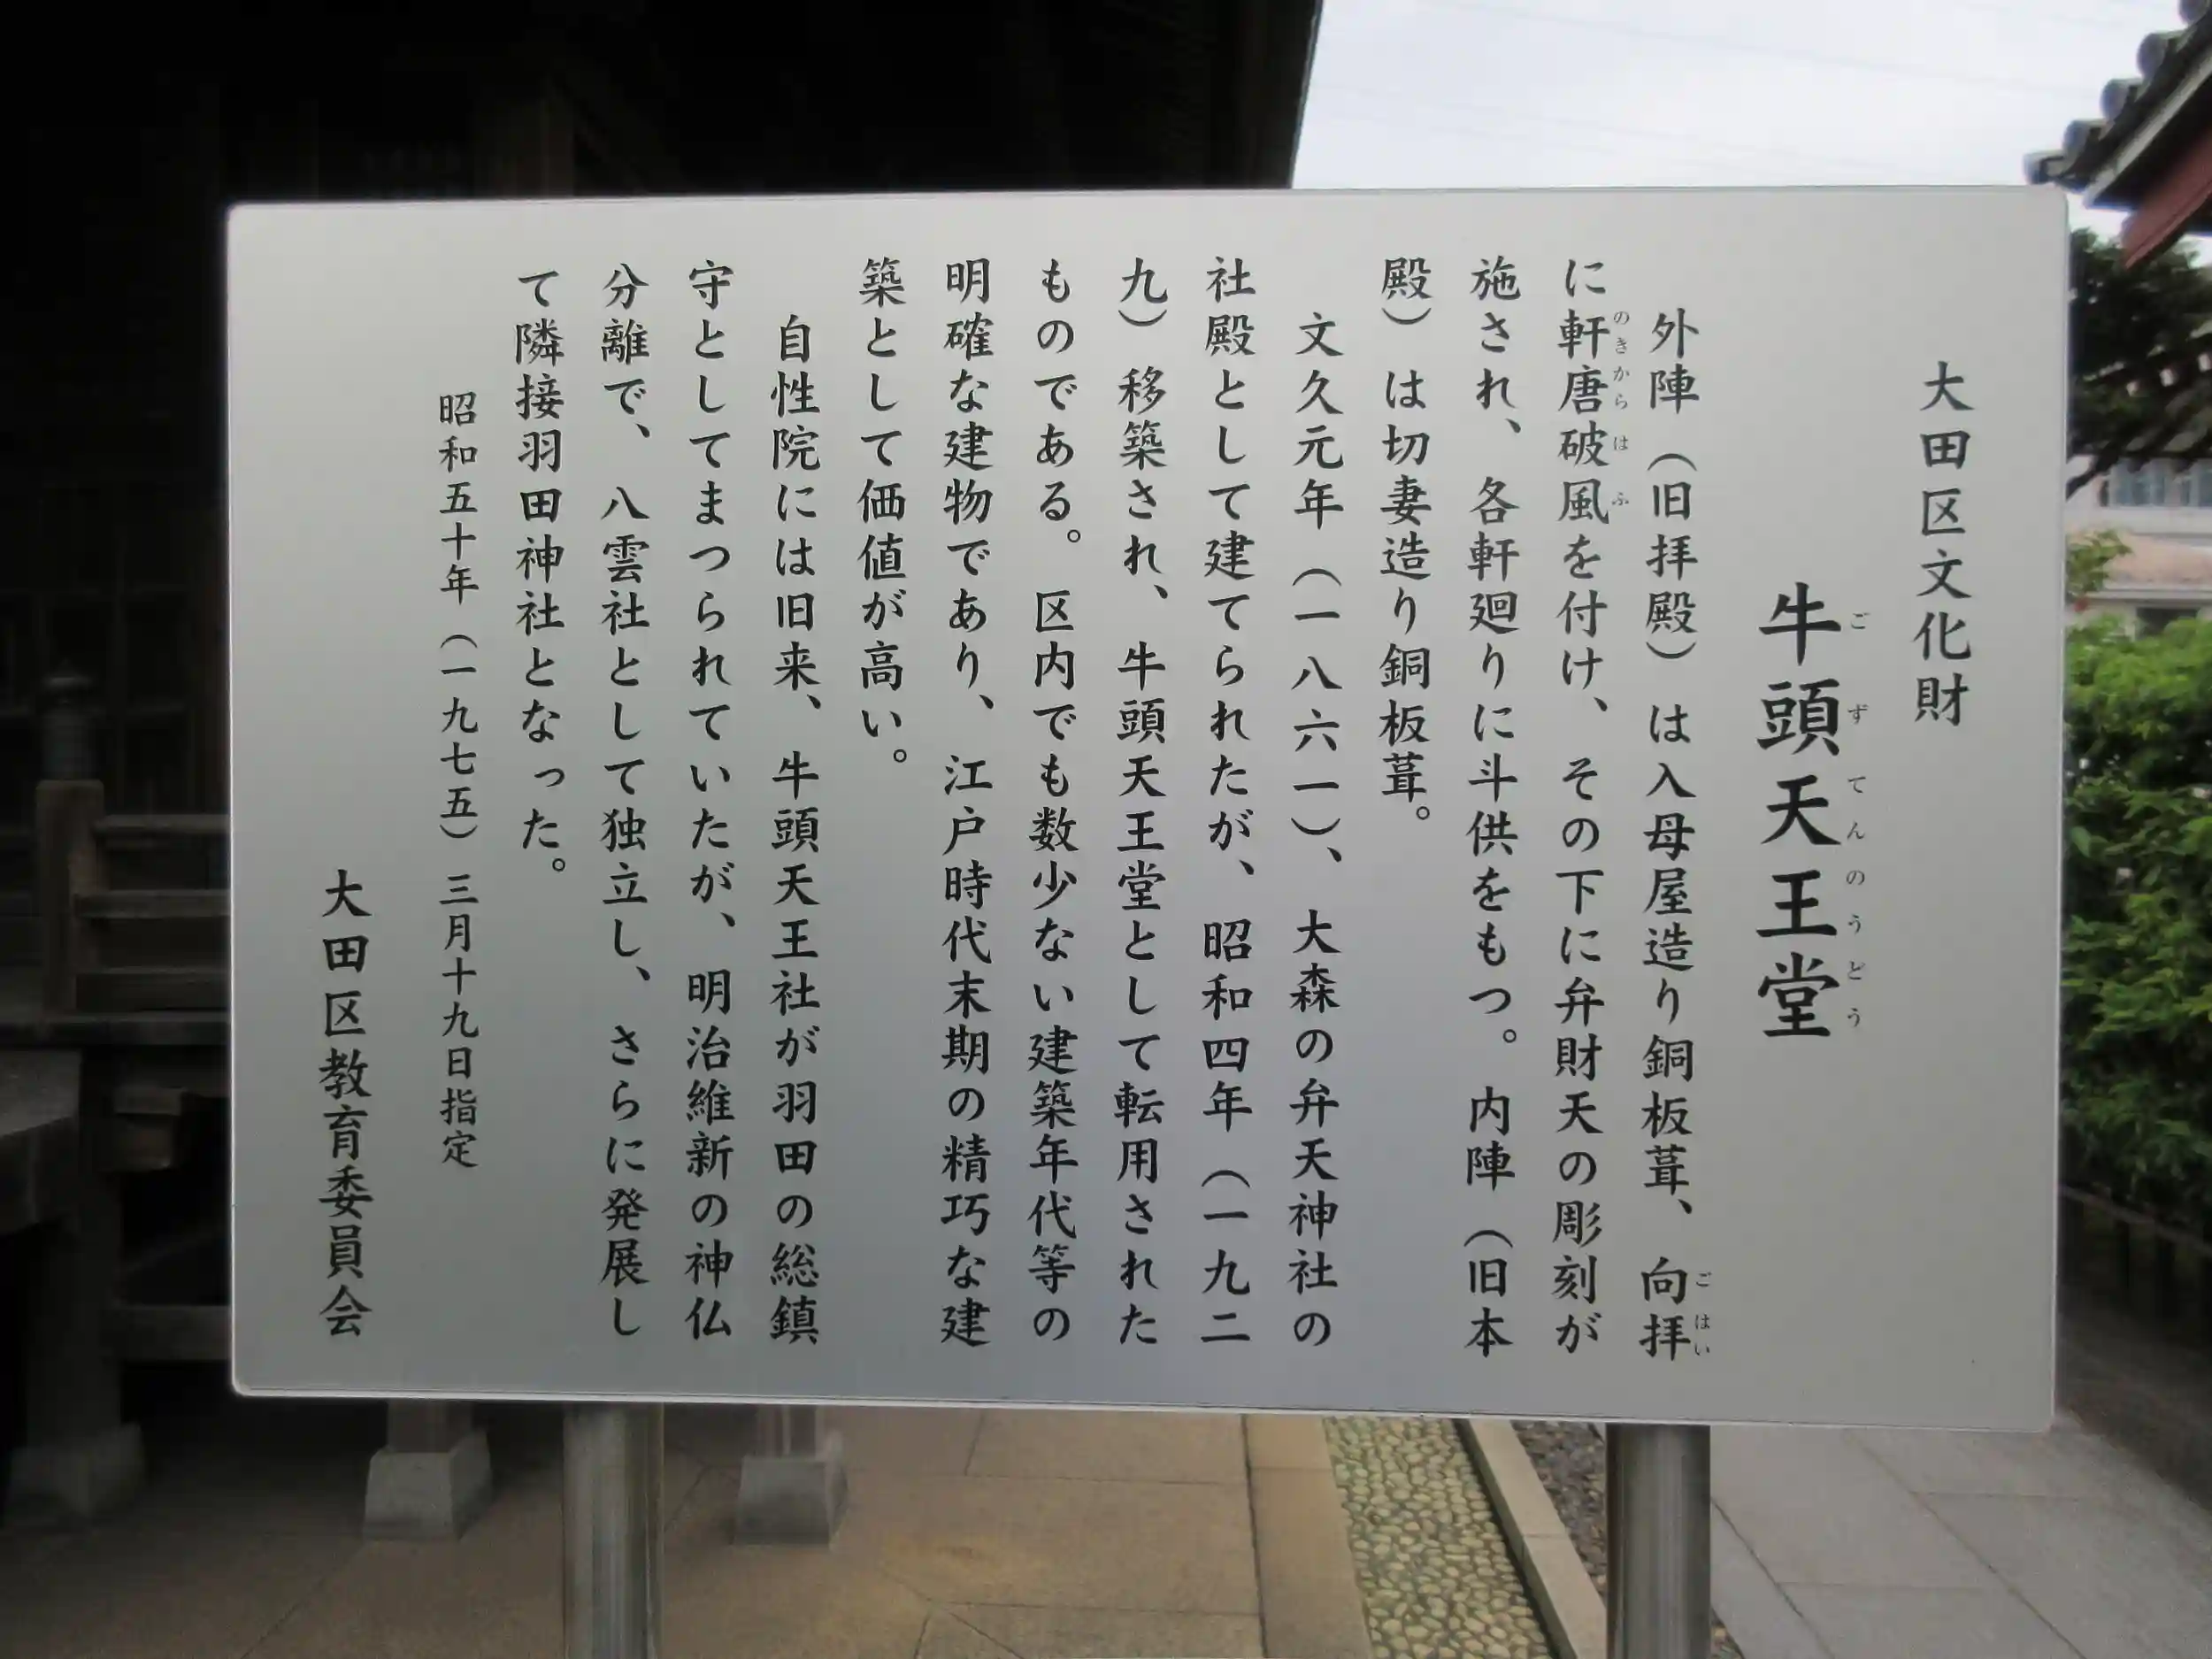 大田区文化財
牛頭天王堂
ごずてんのうどう
外陣(旧拝殿)は入母屋造り銅板葺、向拝
ごはい
に軒唐破風を付け、その下に弁財天の彫刻が
のきからはふ
施され、各軒廻りに斗供をもつ。内陣(旧本
殿)は切妻造り銅板葺。
文久元年(一八六一)、大森の弁天神社の
社殿として建てられたが、昭和四年(一九二
九)移築され、牛頭天王堂として転用された
ものである。区内でも数少ない建築年代等の
明確な建物であり、江戸時代末期の精巧な建
築として価値が高い。
自性院には旧来、牛頭天王社が羽田の総鎮
守としてまつられていたが、明治維新の神仏
分離で、八雲社として独立し、さらに発展し
て隣接羽田神社となった。
昭和五十年(一九七五)三月十九日指定
大田区教育委員会